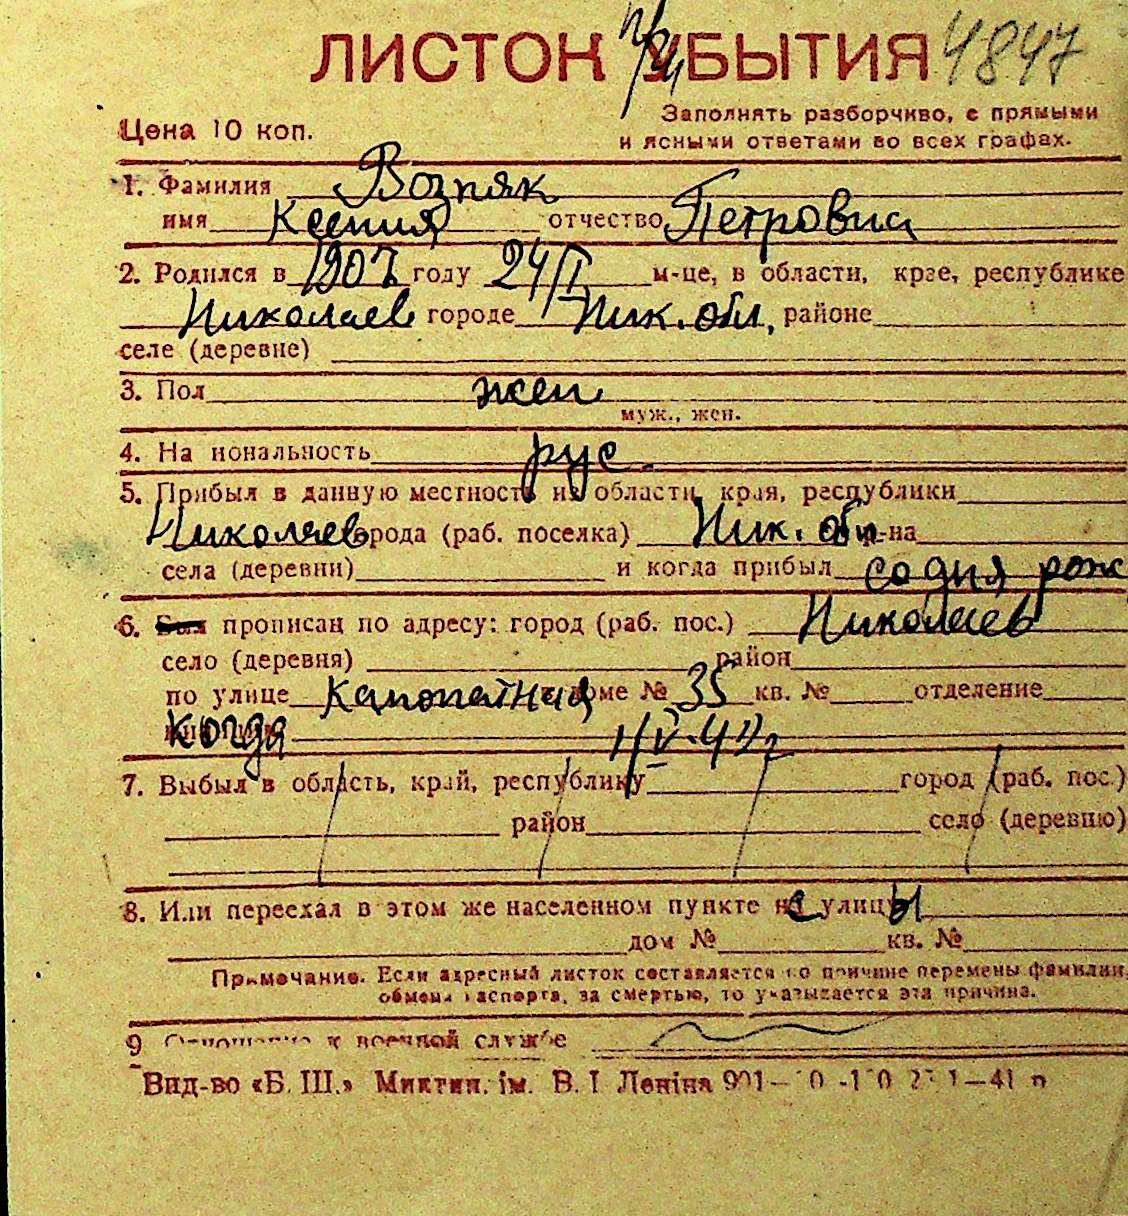 ЛИСТОК УБЫТИЯ 4847
Цена 10 коп.
Заполнять разборчиво, с прямыми
и ясными ответами во всех графах.
1. Фамилия Возняк
имя Ксения отчество Петровна
2. Родился в 1907 году 24/I м-це, в области, крае, республике
Николаев городе Ник. обл, районе
селе (деревне)
3. Пол жен
муж., жен.
4. На иональность рус.
5. Прибыл в данную местность из области, края, республики
Николаев города (раб. поселка) Ник. обл р-на
села (деревни) и когда прибыл со дня рож
6. прописан по адресу: город (раб. пос.) Николаев
село (деревня) район
по улице Канопатная в доме № 35 кв. № отделение
когда
7. Выбыл в область, край, республику город (раб. пос.)
район село (деревню)
8. Или переехал в этом же населенном пункте с улицы
дом № кв. №
Примечание. Если адресный листок составляется по причине перемены фамилии,
обмена паспорта, за смертью, то указывается эта причина.
9 Отношение к военной службе
Вид-во «Б. Ш.» Миктип. ім. В. І Леніна